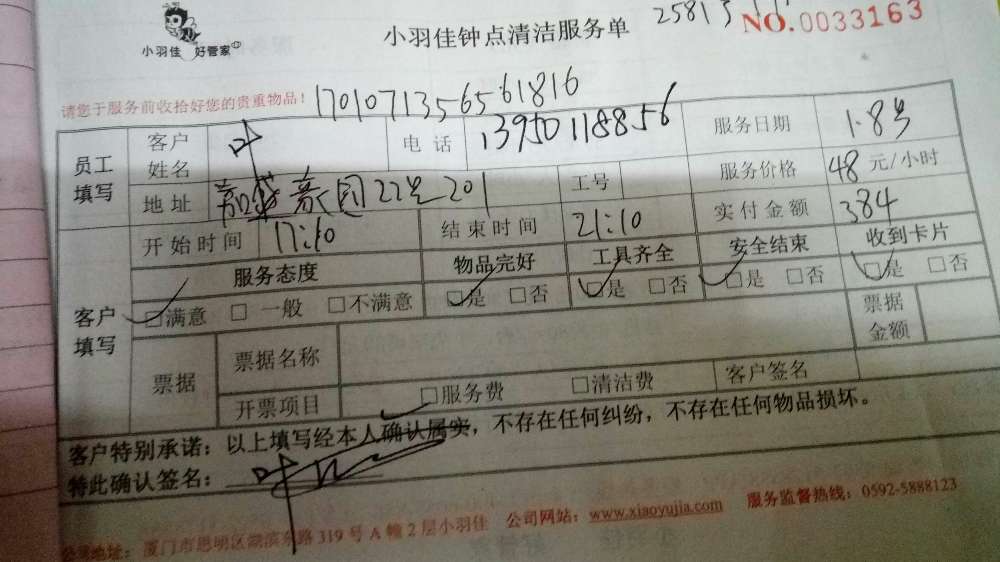 小羽佳 好管家
小羽佳钟点清洁服务单
NO.0033163
请您于服务前收拾好您的贵重物品！ 1701071356561816
员工填写 客户姓名 叶 电话 13950118856 服务日期 1.8号
地址 嘉盛豪园22号201 工号 服务价格 48元/小时
开始时间 17:10 结束时间 21:10 实付金额 384
客户填写 服务态度 物品完好 工具齐全 安全结束 收到卡片
□满意 □一般 □不满意 □是 □否 □是 □否 □是 □否 □是 □否
票据 票据名称 票据金额
开票项目 □服务费 □清洁费 客户签名
客户特别承诺：以上填写经本人确认属实，不存在任何纠纷，不存在任何物品损坏。
特此确认签名：叶
公司地址：厦门市思明区湖滨东路319号A幢2层小羽佳 公司网站：www.xiaoyujia.com 服务监督热线：0592-5888123